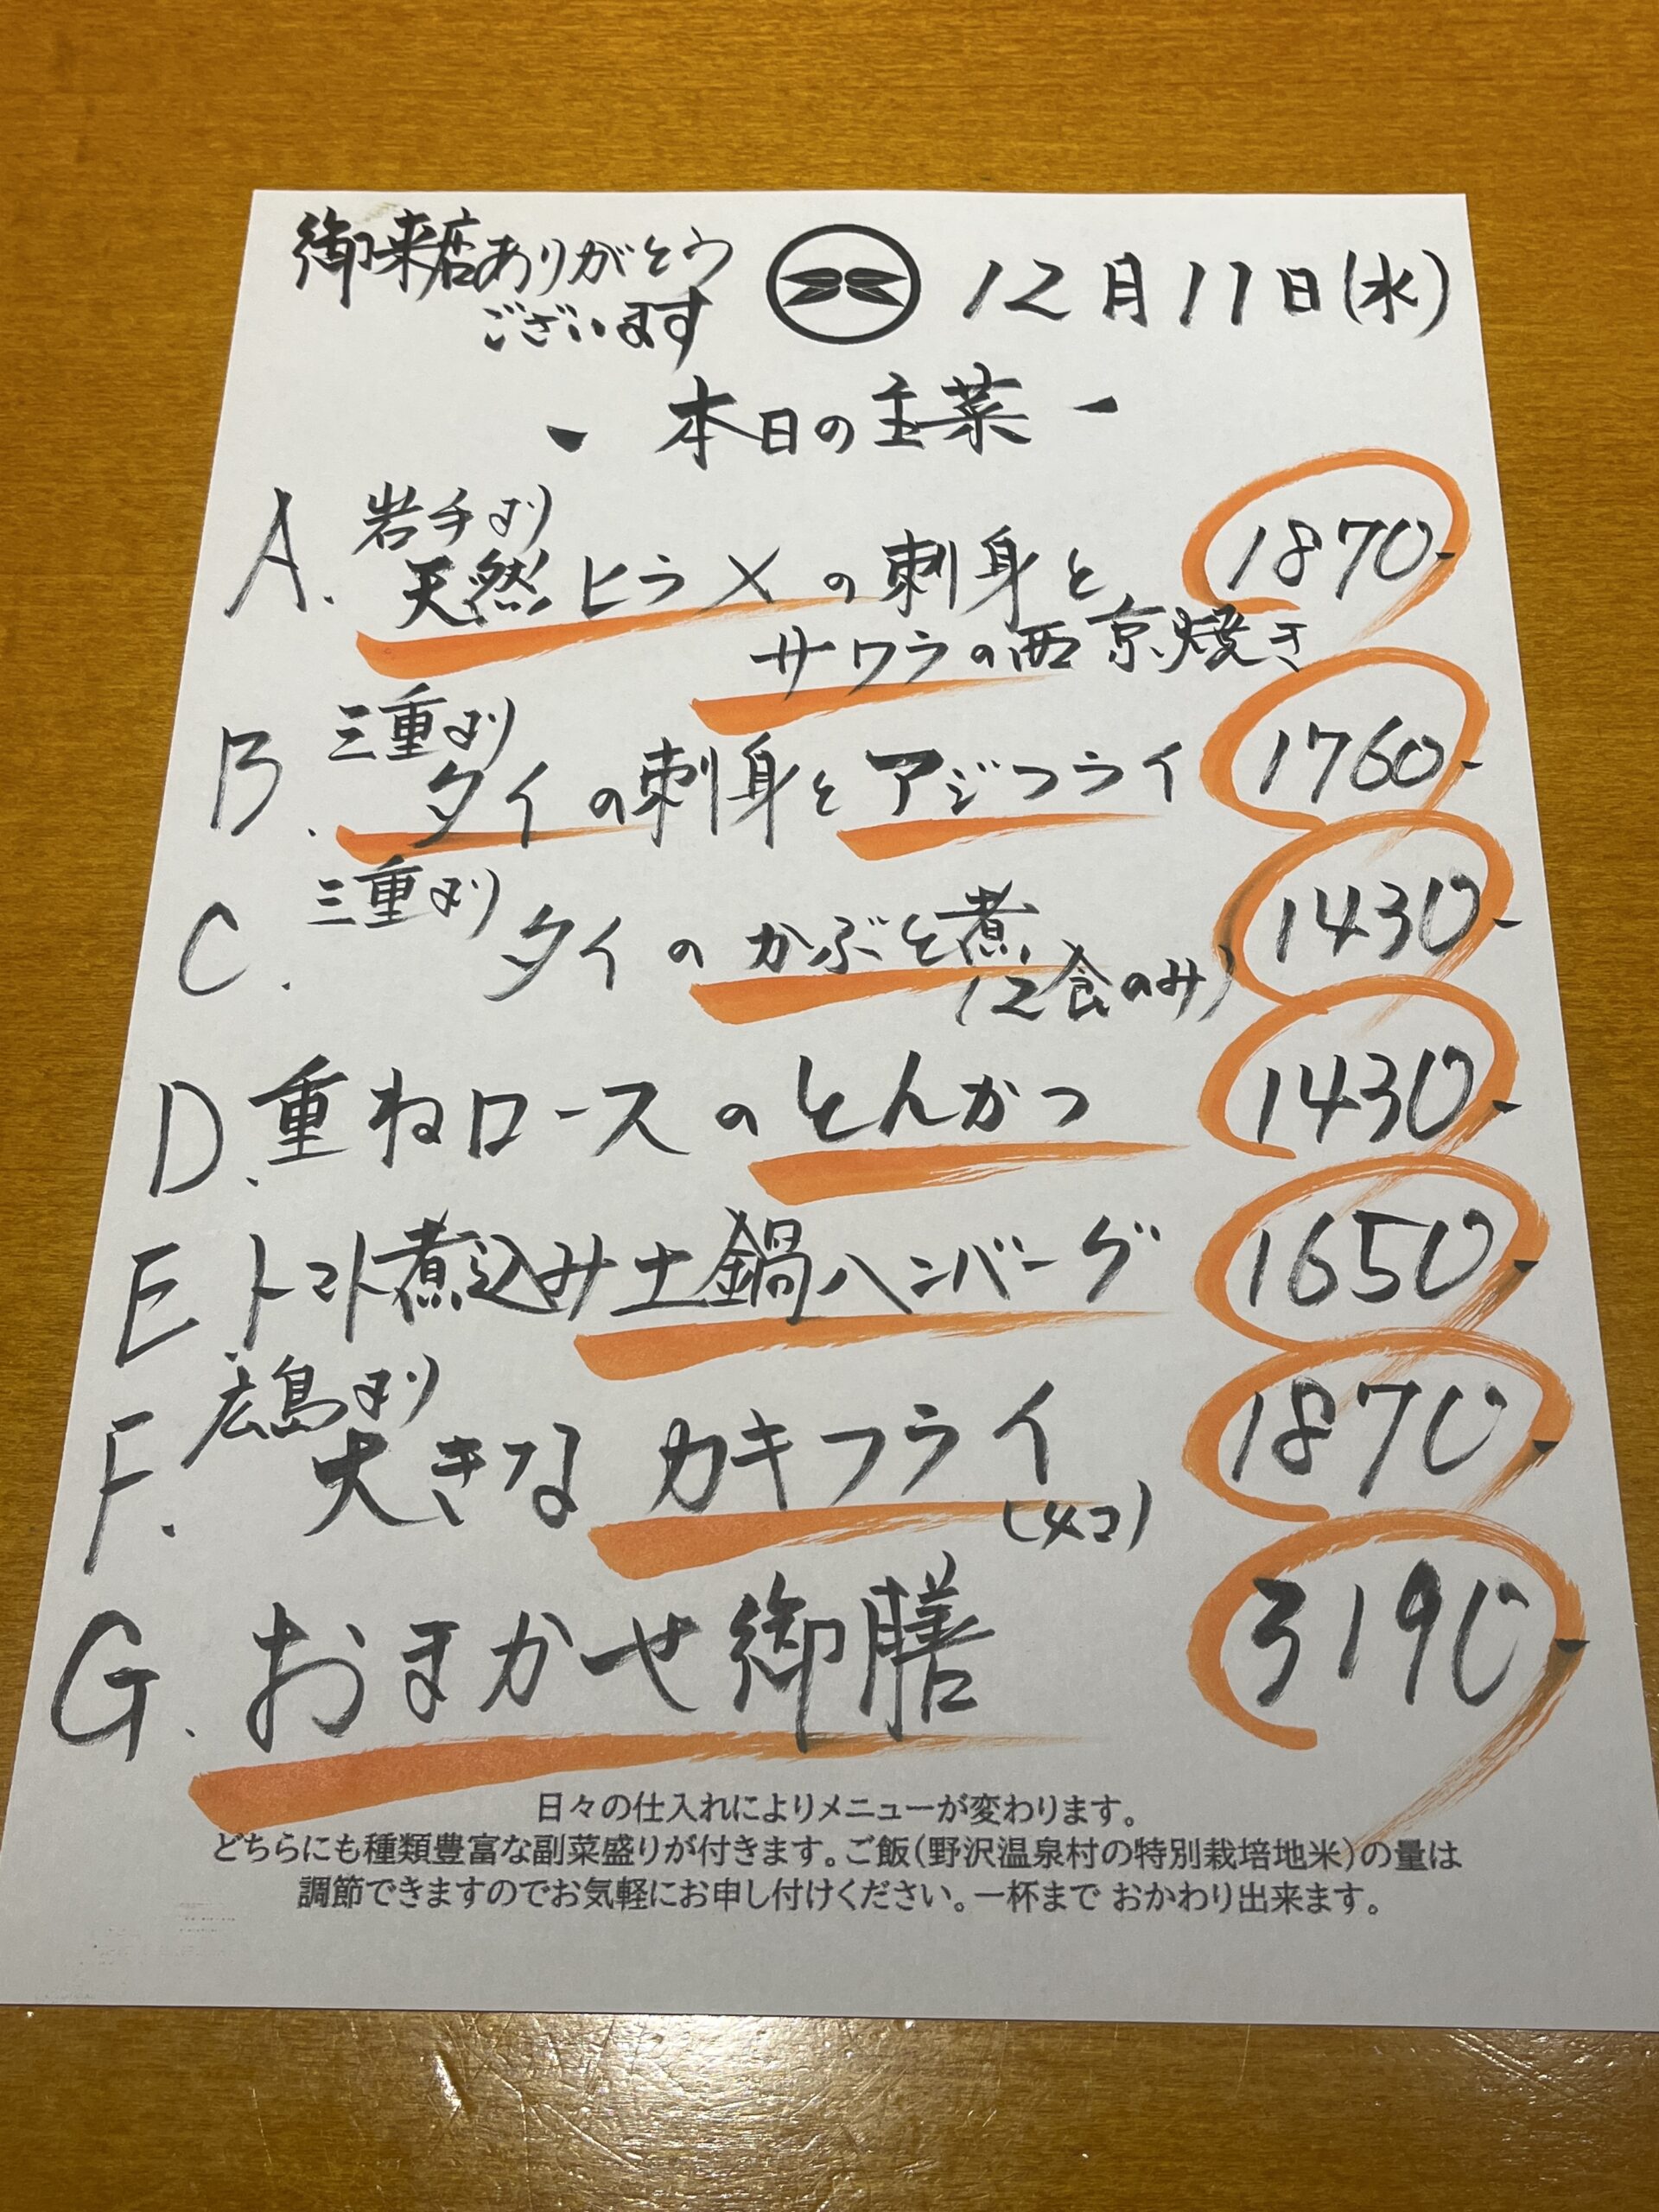 御来店ありがとう
ございます
12月11日(水)
- 本日の主菜 -
A. 岩手より
天然ヒラメの刺身と 1870-
サワラの西京焼き
B. 三重より
タイの刺身とアジフライ 1760-
C. 三重より
タイのかぶと煮 1430-
(2食のみ)
D. 重ねロースのとんかつ 1430-
E. トマト煮込み土鍋ハンバーグ 1650-
F. 広島より
大きなカキフライ 1870-
(4コ)
G. おまかせ御膳 3190-
日々の仕入れによりメニューが変わります。
どちらにも種類豊富な副菜盛りが付きます。ご飯(野沢温泉村の特別栽培地米)の量は
調節できますのでお気軽にお申し付けください。一杯まで おかわり出来ます。